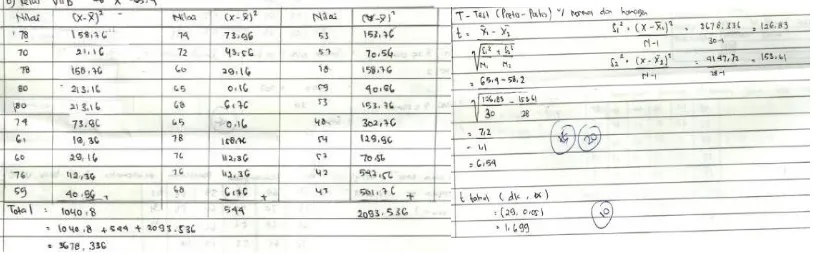 b) Kelas VII B → X̄ = 65.4
Nilai (X-X̄)² Nilai (X-X̄)² Nilai (X-X̄)²
78 158,76 74 73.96 53 153,76
70 21,16 72 43,56 57 70,56
78 158,76 60 29,16 78 158,76
80 213,16 65 0.16 59 40.96
80 213.16 68 6.76 53 153.76
74 73.96 65 0,16 48 302,76
61 19,36 78 158.76 54 129,96
60 29,16 76 112,36 57 70.56
76 112,36 76 112.36 42 547,56
59 40.96 + 68 6.76 + 43 501,76 +
Total : 1040.8 544 2093.536
= 1040.8 + 544 + 2093.536
= 3678,336
T-Test (Preto-Posto)
t = X̄₁ - X̄₂
√ S₁² + S₂²
N₁ N₂
S₁² = (X-X̄)² = 3678.336 = 126,83
N-1 30-1
S₂² = (X-X̄₂)² = 4147,72 = 153.61
N-1 28-1
= 65,4 - 58,2
√ 126,83 - 153.61
30 28
= 7,2
= 6,54
t tabel (dk, α)
= (29, 0.05)
= 1,699